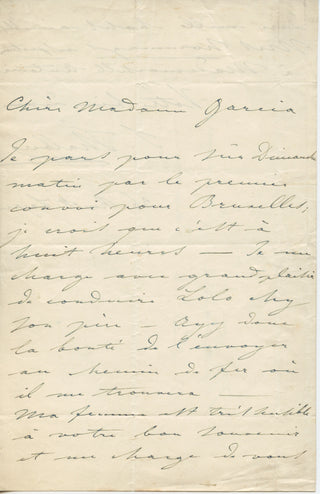 Chère Madame Garcia
Je pars pour sûr Dimanche
matin par le premier
convoi pour Bruxelles,
je crois que c'est à
huit heures — Je me
charge avec grand plaisir
de conduire Lolo chez
son père — ayez donc
la bonté de l'envoyer
au chemin de fer où
il me trouvera —
Ma femme est très sensible
à votre bon souvenir
et me charge de vous